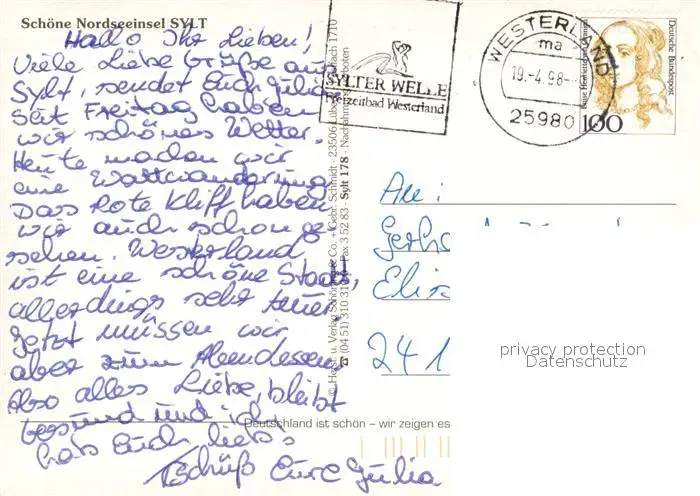 Schöne Nordseeinsel SYLT
Hallo Ihr Lieben!
Viele Liebe Grüße aus
Sylt, sendet Euch Julia.
Seit Freitag haben
wir schönes Wetter.
Heute machen wir
eine Wattwanderung
Das Rote Kliff haben
wir auch schon ge
sehen. Westerland
ist eine schöne Stadt,
allerdings sehr teuer.
Jetzt müssen wir
aber zum Abendessen.
Also alles Liebe, bleibt
gesund und ich
hab Euch lieb's
Tschüß Eure Julia
SYLTER WELLE
Freizeitbad Westerland
WESTERLAND
ma
19.-4.98
25980
Deutsche Bundespost
100
An:
Gerh
Elis
241
privacy protection
Datenschutz
Schmidt · 23506
(04 51) 310 31
Fax 3 52 83 · Sylt 178 ·
Deutschland ist schön – wir zeigen es